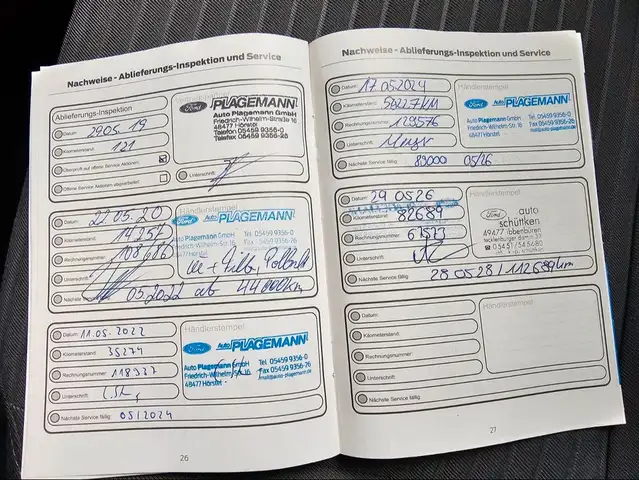 Nachweise - Ablieferungs-Inspektion und Service
Ablieferungs-Inspektion
Datum: 29.05.19
Kilometerstand: 121
Überprüft auf offene Service Aktionen:
Offene Service Aktionen abgearbeitet:
Ford Auto PLAGEMANN
Auto Plagemann GmbH
Friedrich-Wilhelm-Straße 16
48477 Hörstel
Telefon 05459 9356-0
Telefax 05459 9356-26
Unterschrift:
Datum: 22.05.20
Kilometerstand: 14257
Rechnungsnummer:
Unterschrift:
Händlerstempel
Ford Auto PLAGEMANN
Auto Plagemann GmbH
Friedrich-Wilhelm-Str. 16
48477 Hörstel
Tel. 05459 9356-0
Fax 05459 9356-26
Nächste Service fällig: 05.2022 ab 44000km
Datum: 11.05.2022
Kilometerstand: 35274
Rechnungsnummer: 118327
Unterschrift:
Händlerstempel
Ford Auto PLAGEMANN
Auto Plagemann GmbH
Friedrich-Wilhelm-Str. 16
48477 Hörstel
Tel. 05459 9356-0
Fax 05459 9356-26
mail@auto-plagemann.de
Nächste Service fällig: 05/2024
26
Nachweise - Ablieferungs-Inspektion und Service
Datum: 17.05.2024
Kilometerstand:
Rechnungsnummer: 129576
Unterschrift:
Händlerstempel
Ford Auto PLAGEMANN
Auto Plagemann GmbH
Friedrich-Wilhelm-Str. 16
48477 Hörstel
Tel. 05459 9356-0
Fax 05459 9356-26
mail@auto-plagemann.de
Nächste Service fällig: 89000 05/26
Datum: 29 05.26
Kilometerstand: 82689
Rechnungsnummer: 61523
Unterschrift:
Händlerstempel
Ford auto
schütten
49477 Ibbenbüren
tecklenburger damm 37
05451/545480
Nächste Service fällig: 28 05 28 / 112689km
Datum:
Kilometerstand:
Rechnungsnummer:
Unterschrift:
Händlerstempel
Nächste Service fällig:
27